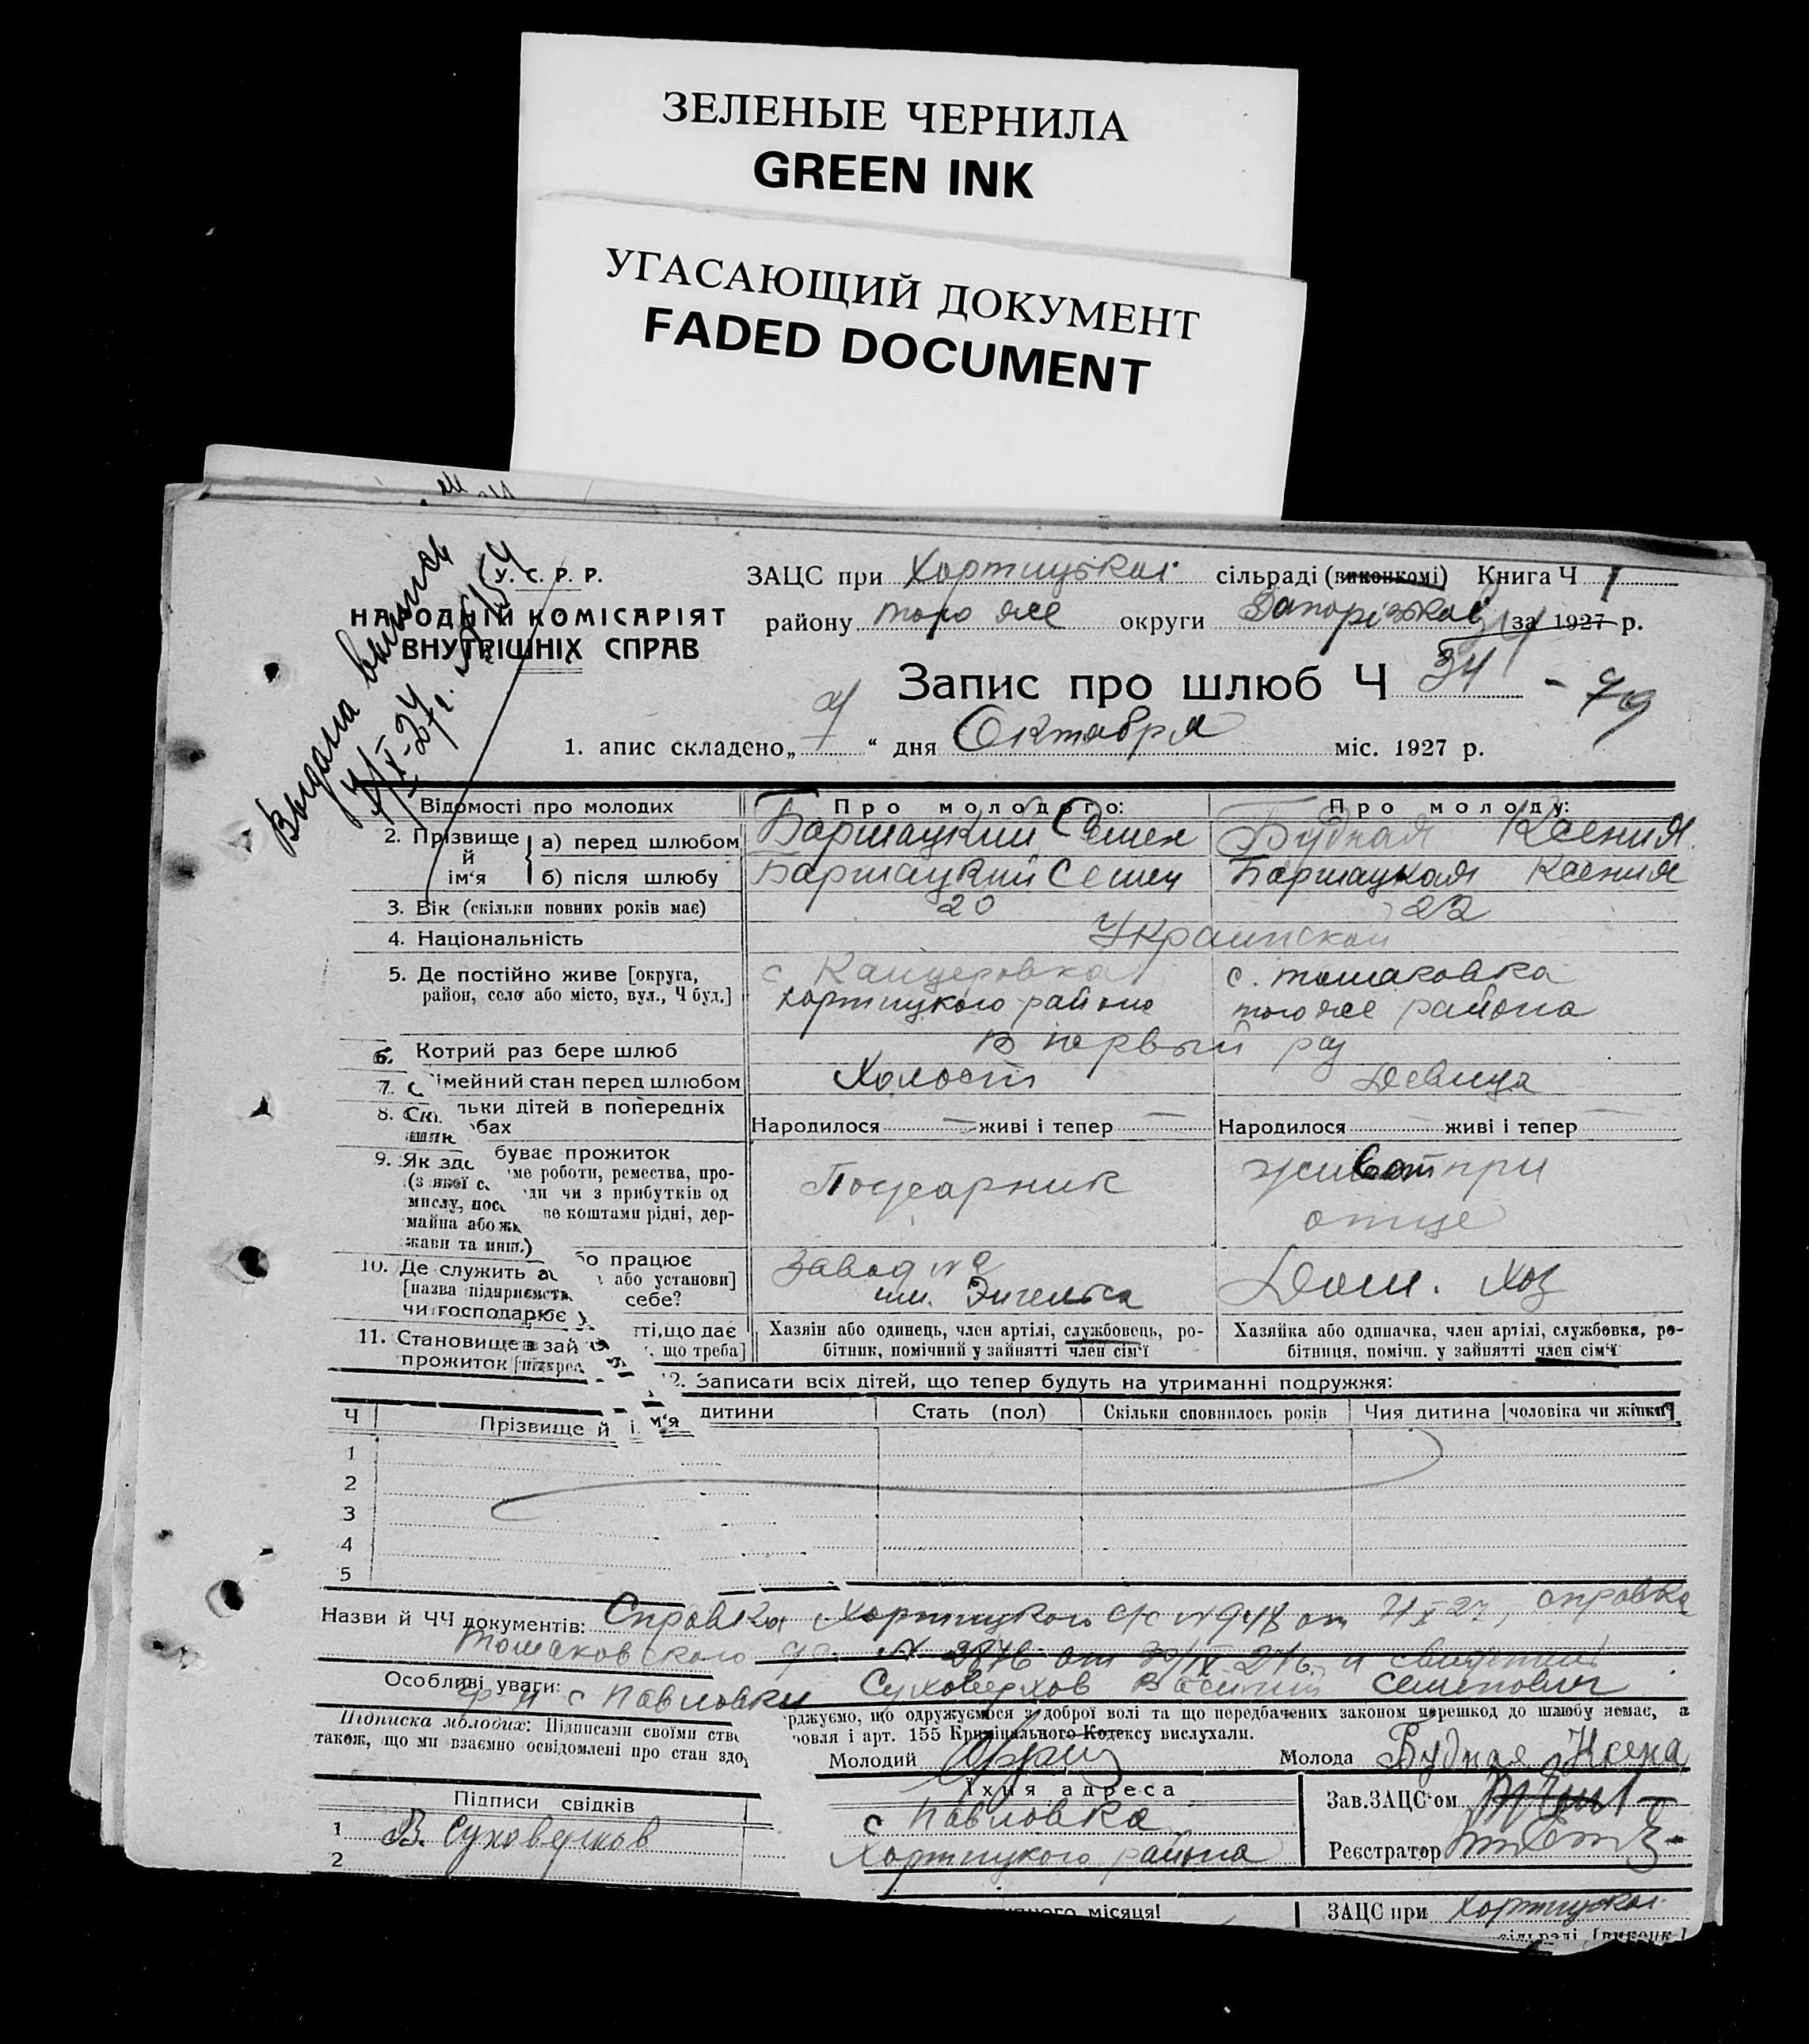 ЗЕЛЕНЫЕ ЧЕРНИЛА
GREEN INK
УГАСАЮЩИЙ ДОКУМЕНТ
FADED DOCUMENT
Выдана выпись
У. С. Р. Р.
НАРОДНІЙ КОМІСАРІЯТ
ВНУТРІШНІХ СПРАВ
ЗАЦС при Хортицькой сільраді (виконкомі) Книга Ч 1
району того же округи Запорізькой за 1927 р.
Запис про шлюб Ч 34 - 79
1. апис складено „7“ дня Октября міс. 1927 р.
Відомості про молодих Про молодого: Про молоду:
2. Прізвище й ім‘я а) перед шлюбом Баршацкий Семен Будная Ксения
б) після шлюбу Баршацкий Семен Баршацкая Ксения
3. Вік (скільки повних років має) 20 22
4. Національність Украинской
5. Де постійно живе [округа, с Канцеровка с. Томаковка
район, село або місто, вул., Ч буд.] Хортицкого района того же района
6. Котрий раз бере шлюб В первый раз
7. С імейний стан перед шлюбом Холост Девица
8. Скі льки дітей в попередніх
шлю бах Народилося — живі і тепер — Народилося — живі і тепер —
9. Як здо буває прожиток
(з якої са ме роботи, ремества, про-
мислу, поса ди чи з прибутків од
майна або жи ве коштами рідні, дер-
жави та инш.)
Пожарник живет при
отце
10. Де служить або працює
[назва підприємств або установи]
чи господарює у себе?
Завод
им. Энгельса Дом. хоз
11. Становище в зайнятті, що дає
прожиток [підкрес , що треба]
Хазяїн або одинець, член артілі, службовець, ро-
бітник, помічний у зайнятті член сім‘ї
Хазяйка або одиначка, член артілі, службовка, ро-
бітниця, помічн. у зайнятті член сім‘ї
12. Записати всіх дітей, що тепер будуть на утриманні подружжя:
Ч Прізвище й ім‘я дитини Стать (пол) Скільки сповнилось років Чия дитина [чоловіка чи жінки]
1
2
3
4
5
Назви й ЧЧ документів: Справка Хортицкого с/с №948 от 7/X 27, справка
Томаковского от
Особливі уваги: с Павловки Суховерхов Василий Семенович
Підписка молодих: Підписами своїми ство рджуємо, що одружуємося з доброї волі та що передбачених законом перешкод до шлюбу немає, а
також, що ми взаємно освідомлені про стан здо ровля і арт. 155 Кримінального Кодексу вислухали.
Молодий Молода Будная Ксена
Підписи свідків Їхня адреса Зав. ЗАЦС‘ом
1 В. Суховерхов с Павловка
2 Хортицкого района Реєстратор
місяця! ЗАЦС при Хортицкой
сільраді [виконк.]